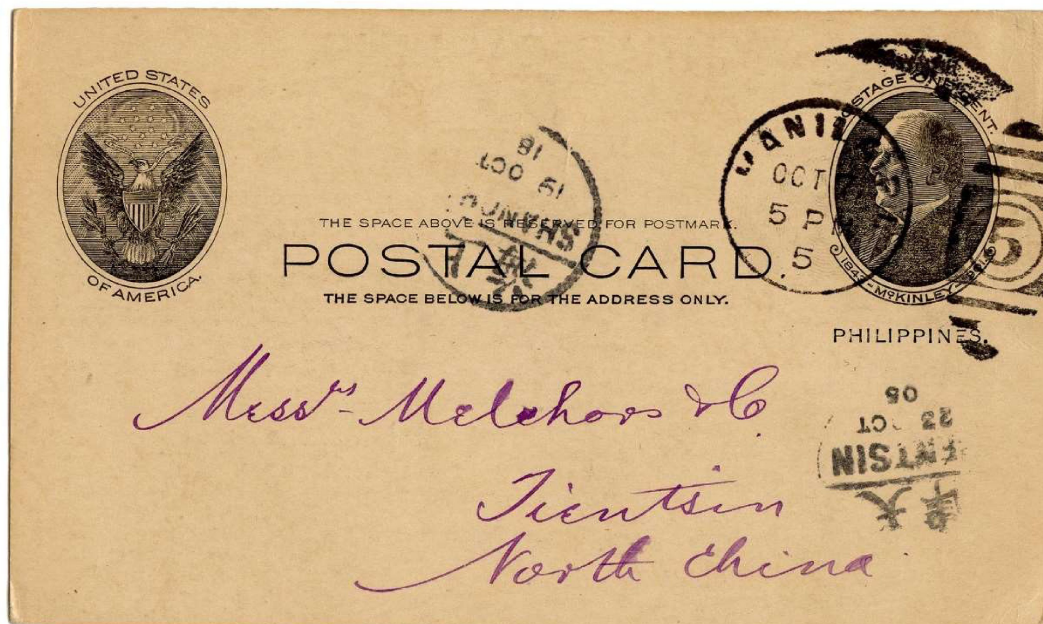 UNITED STATES
OF AMERICA.
POSTAGE ONE CENT.
1843 - McKINLEY - 1901
MANILA
OCT
5 PM
5
5
18
19 OCT
THE SPACE ABOVE IS RESERVED FOR POSTMARK.
POSTAL CARD.
THE SPACE BELOW IS FOR THE ADDRESS ONLY.
PHILIPPINES.
Messrs Melchors & C.
Tientsin
North China
05
23 OCT
ENTSIN